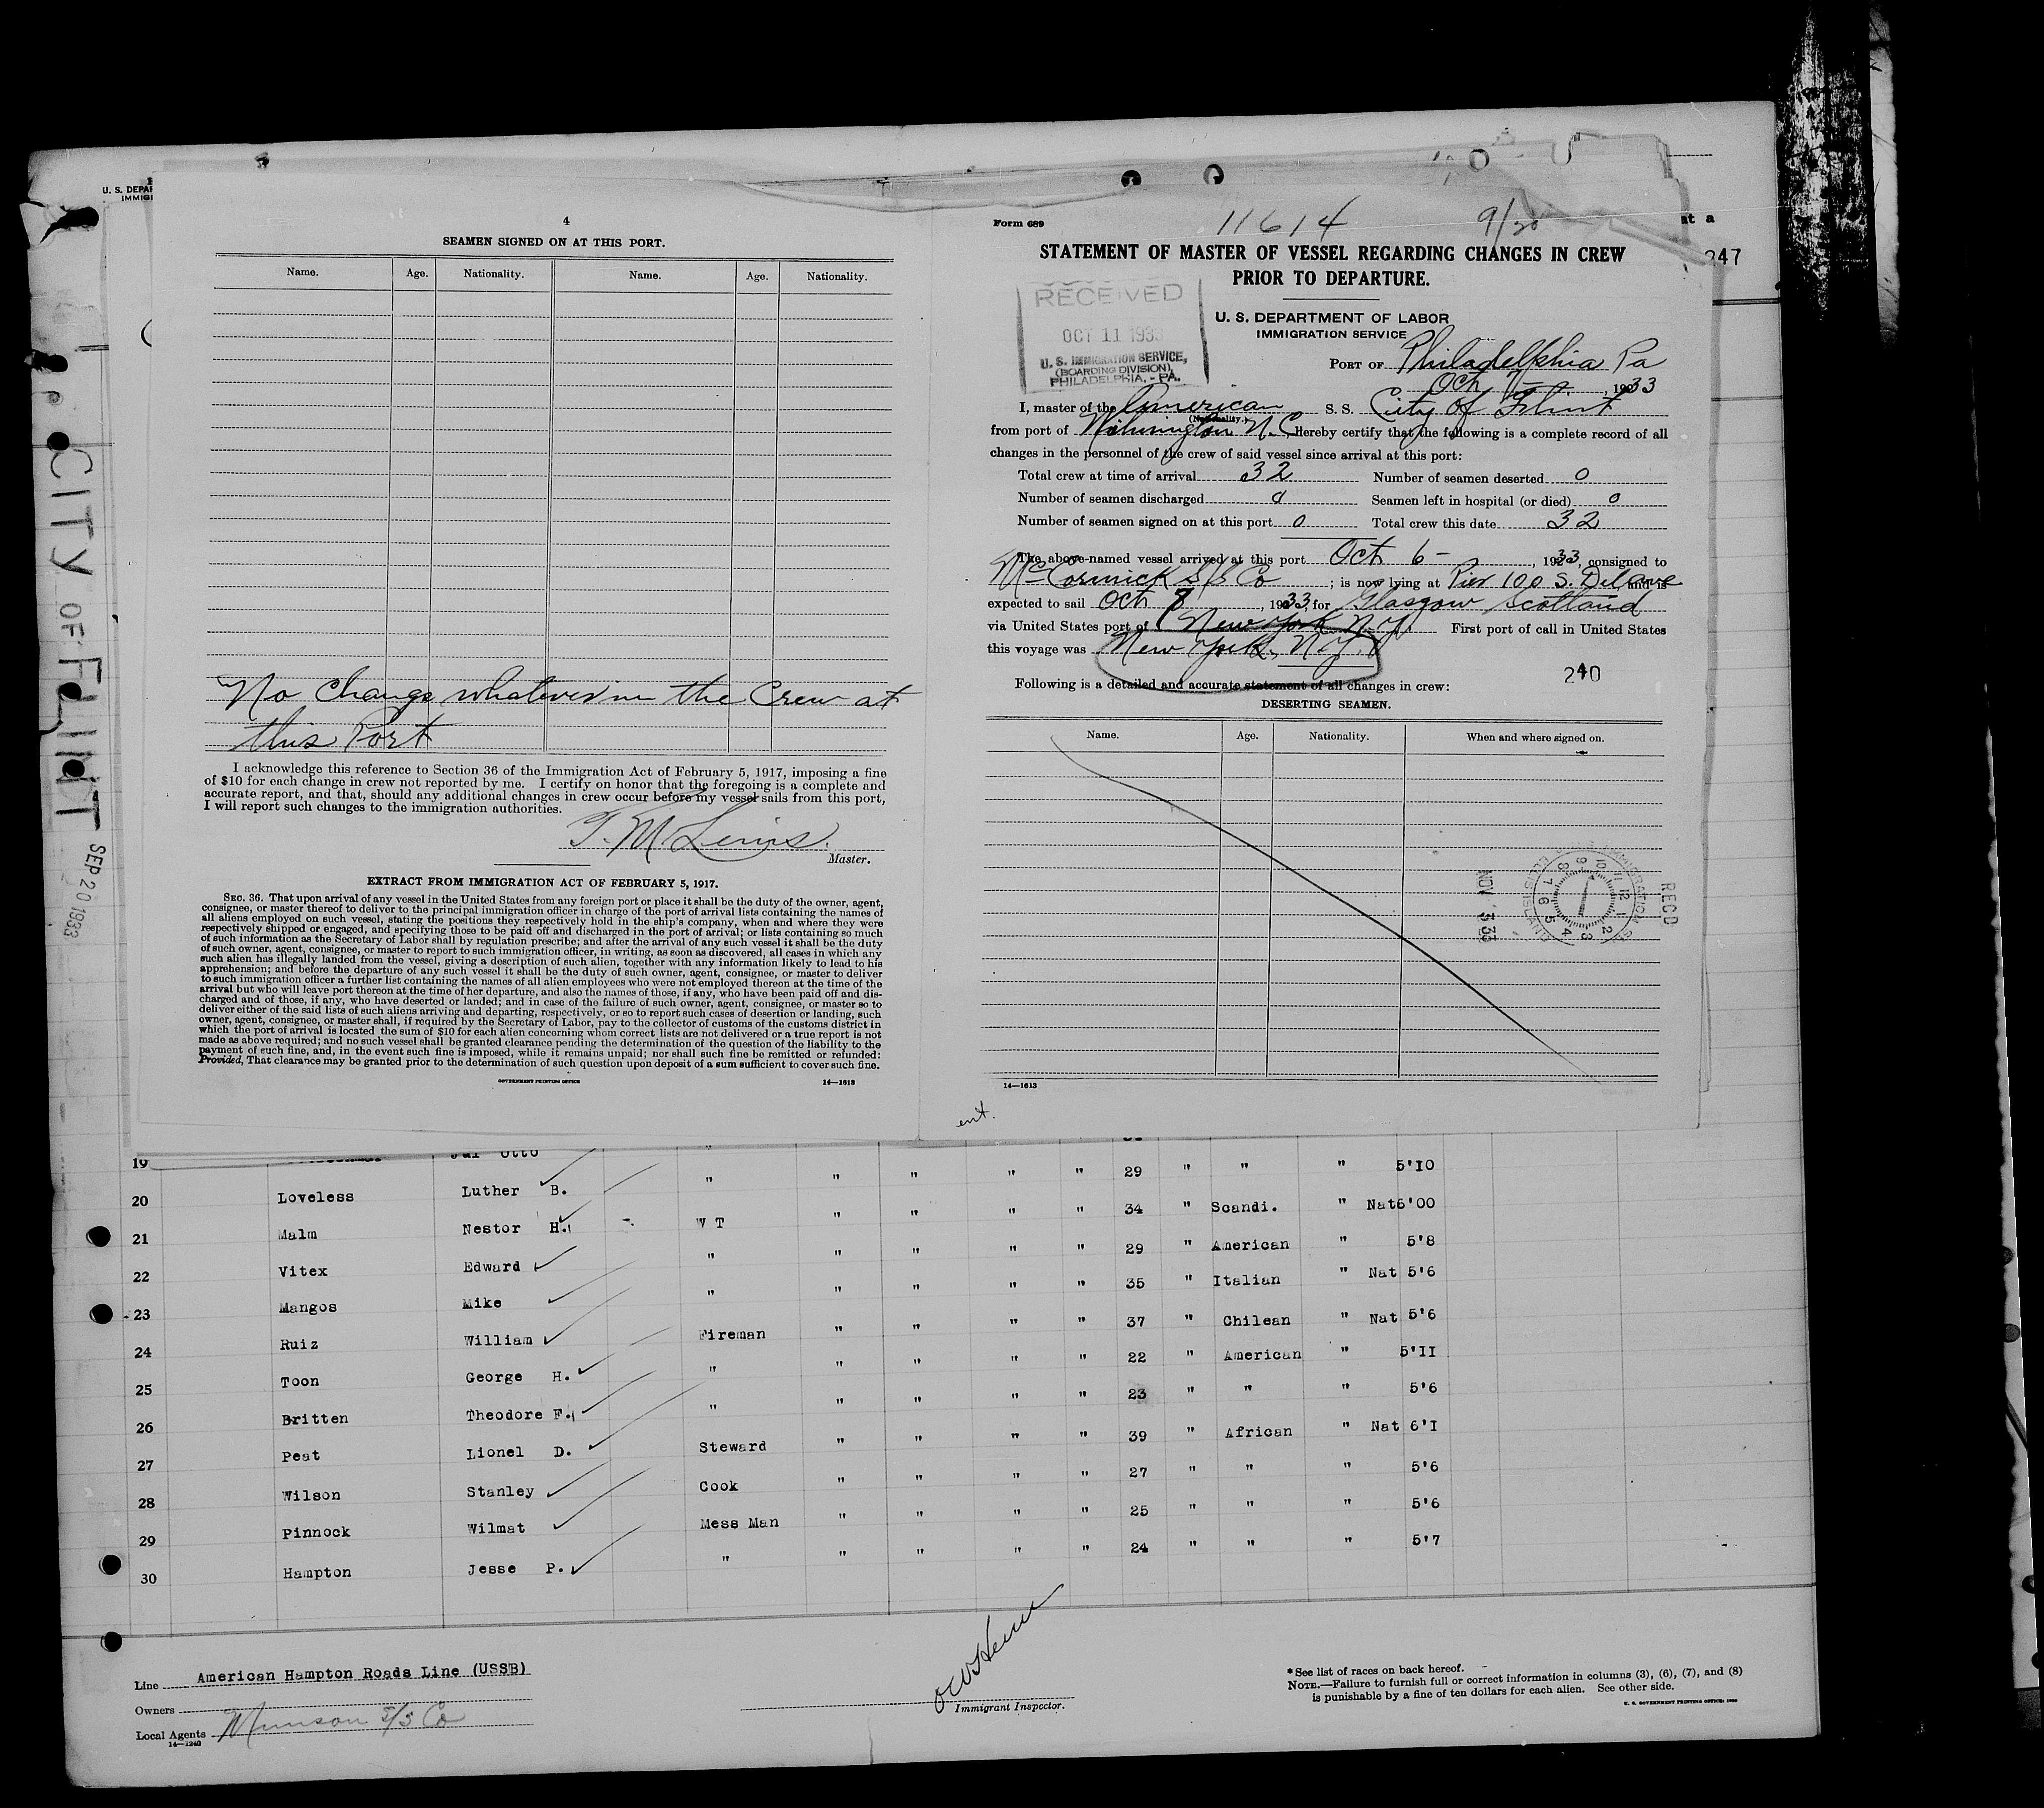 U. S. DEPAR
IMMIGI
CITY OF FLINT SEP 20 1933
4
SEAMEN SIGNED ON AT THIS PORT.
Name. Age. Nationality. Name. Age. Nationality.
No Change whatever in the Crew at
this Port
I acknowledge this reference to Section 36 of the Immigration Act of February 5, 1917, imposing a fine
of $10 for each change in crew not reported by me. I certify on honor that the foregoing is a complete and
accurate report, and that, should any additional changes in crew occur before my vessel sails from this port,
I will report such changes to the immigration authorities.
T. M Lewis.
Master.
EXTRACT FROM IMMIGRATION ACT OF FEBRUARY 5, 1917.
SEC. 36. That upon arrival of any vessel in the United States from any foreign port or place it shall be the duty of the owner, agent,
consignee, or master thereof to deliver to the principal immigration officer in charge of the port of arrival lists containing the names of
all aliens employed on such vessel, stating the positions they respectively hold in the ship's company, when and where they were
respectively shipped or engaged, and specifying those to be paid off and discharged in the port of arrival; or lists containing so much
of such information as the Secretary of Labor shall by regulation prescribe; and after the arrival of any such vessel it shall be the duty
of such owner, agent, consignee, or master to report to such immigration officer, in writing, as soon as discovered, all cases in which any
such alien has illegally landed from the vessel, giving a description of such alien, together with any information likely to lead to his
apprehension; and before the departure of any such vessel it shall be the duty of such owner, agent, consignee, or master to deliver
to such immigration officer a further list containing the names of all alien employees who were not employed thereon at the time of the
arrival but who will leave port thereon at the time of her departure, and also the names of those, if any, who have been paid off and dis-
charged and of those, if any, who have deserted or landed; and in case of the failure of such owner, agent, consignee, or master so to
deliver either of the said lists of such aliens arriving and departing, respectively, or so to report such cases of desertion or landing, such
owner, agent, consignee, or master shall, if required by the Secretary of Labor, pay to the collector of customs of the customs district in
which the port of arrival is located the sum of $10 for each alien concerning whom correct lists are not delivered or a true report is not
made as above required; and no such vessel shall be granted clearance pending the determination of the question of the liability to the
payment of such fine, and, in the event such fine is imposed, while it remains unpaid; nor shall such fine be remitted or refunded:
Provided, That clearance may be granted prior to the determination of such question upon deposit of a sum sufficient to cover such fine.
GOVERNMENT PRINTING OFFICE 14—1613
Form 689 11614 9/20
at a
247
STATEMENT OF MASTER OF VESSEL REGARDING CHANGES IN CREW
PRIOR TO DEPARTURE.
RECEIVED
OCT 11 1933
U. S. IMMIGRATION SERVICE,
(BOARDING DIVISION),
PHILADELPHIA, - PA.
U. S. DEPARTMENT OF LABOR
IMMIGRATION SERVICE
PORT OF Philadelphia Pa
Oct 7 — , 1933
I, master of the American S. S. City of Flint
(Nationality.)
from port of Wilmington N.C. hereby certify that the following is a complete record of all
changes in the personnel of the crew of said vessel since arrival at this port:
Total crew at time of arrival 32 Number of seamen deserted 0
Number of seamen discharged 0 Seamen left in hospital (or died) 0
Number of seamen signed on at this port 0 Total crew this date 32
The above-named vessel arrived at this port Oct 6 - , 1933, consigned to
McCormick S/S Co ; is now lying at Pier 100 S. Del ave and is
expected to sail Oct 7 , 1933, for Glasgow Scotland
via United States port of New York N.Y. First port of call in United States
this voyage was New York, N.Y.
240
Following is a detailed and accurate statement of all changes in crew:
DESERTING SEAMEN.
Name. Age. Nationality. When and where signed on.
RECD
NOV 3 33
14—1613
ent.
19 Otto " " " " " 29 " " " 5'10
20 Loveless Luther B. " " " " 34 " Scandi. " Nat 6'00
21 Malm Nestor H. W T " " " " 29 " American " 5'8
22 Vitex Edward " " " " " 35 " Italian " Nat 5'6
23 Mangos Mike " " " " " 37 " Chilean " Nat 5'6
24 Ruiz William Fireman " " " " 22 " American " 5'11
25 Toon George H. " " " " " 23 " " " 5'6
26 Britten Theodore F. " " " " " 39 " African " Nat 6'1
27 Peat Lionel D. Steward " " " " 27 " " " 5'6
28 Wilson Stanley Cook " " " " 25 " " " 5'6
29 Pinnock Wilmat Mess Man " " " " 24 " " " 5'7
30 Hampton Jesse P. " " " " "
Line American Hampton Roads Line (USSB)
Owners
Local Agents Munson S/S Co
14—1240
Immigrant Inspector.
* See list of races on back hereof.
NOTE.—Failure to furnish full or correct information in columns (3), (6), (7), and (8)
is punishable by a fine of ten dollars for each alien. See other side.
U. S. GOVERNMENT PRINTING OFFICE: 1930